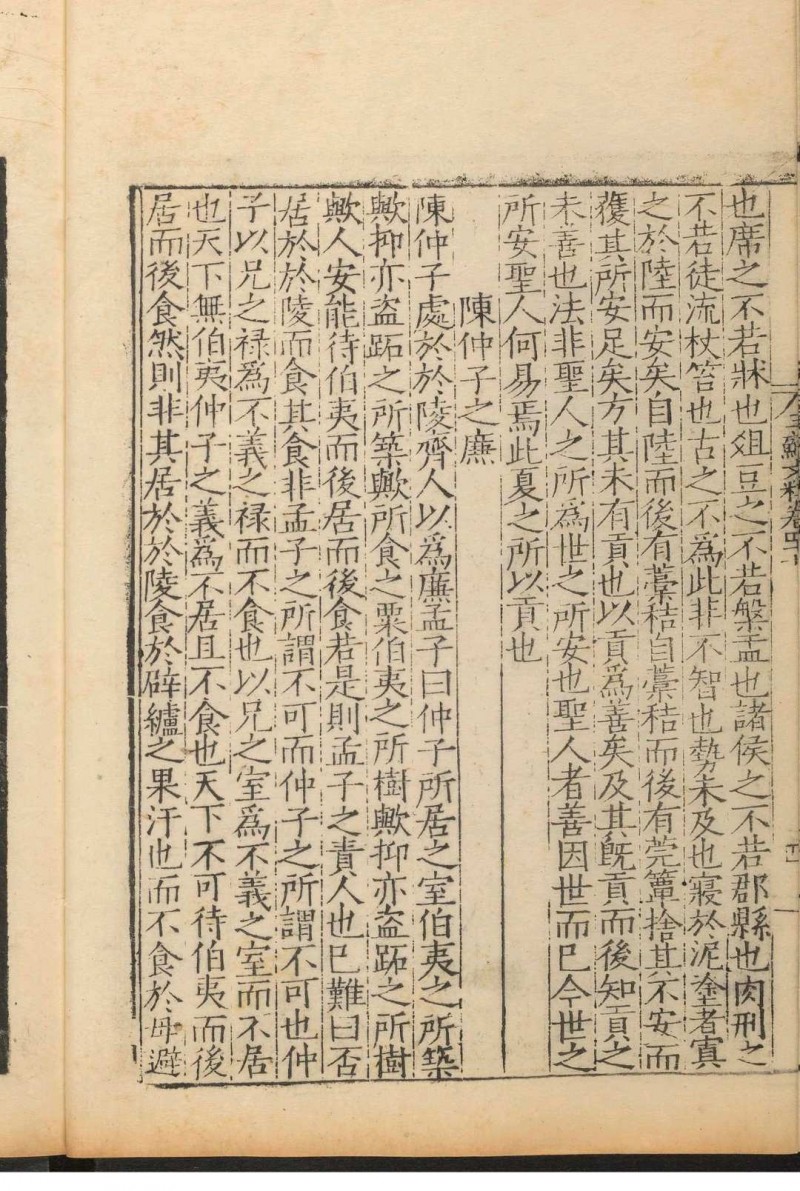 也席之不若牀也俎豆之不若槃盂也諸侯之不若郡縣也肉刑之
不若徒流杖笞也古之不為此非不智也勢未及也寢於泥塗者寘
之於陸而安矣自陸而後有藁秸自藁秸而後有莞簟捨其不安而
獲其所安足矣方其未有貢也以貢為善矣及其既貢而後知貢之
未善也法非聖人之所為世之所安也聖人者善因世而已今世之
所安聖人何易焉此夏之所以貢也
陳仲子之廉
陳仲子處於於陵齊人以為廉孟子曰仲子所居之室伯夷之所築
歟抑亦盗跖之所築歟所食之粟伯夷之所樹歟抑亦盗跖之所樹
歟人安能待伯夷而後居而後食若是則孟子之責人也已難曰否
居於於陵而食其食非孟子之所謂不可而仲子之所謂不可也仲
子以兄之禄為不義之禄而不食也以兄之室為不義之室而不居
也天下無伯夷仲子之義為不居且不食也天下不可待伯夷而後
居而後食然則非其居於於陵食於辟纑之果汙也而不食於母避